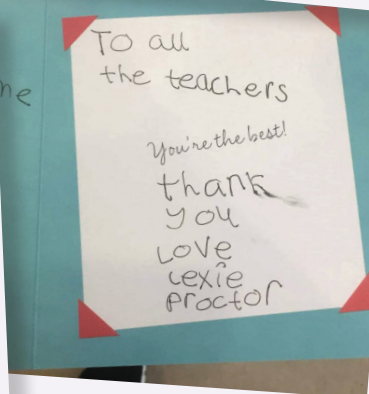 To all
the teachers
You're the best!
thank
you
Love
Lexie
Proctor